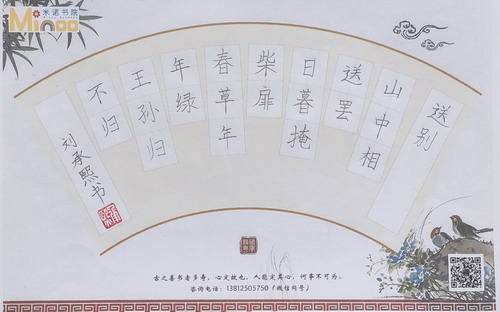 米诺书院
Minoo
送别
山中相
送罢
日暮掩
柴扉
春草年
年绿
王孙归
不归
刘承熙书
古之善书者多寿，心定故也，人能定其心，何事不可为。
咨询电话：13812505750「微信同号」